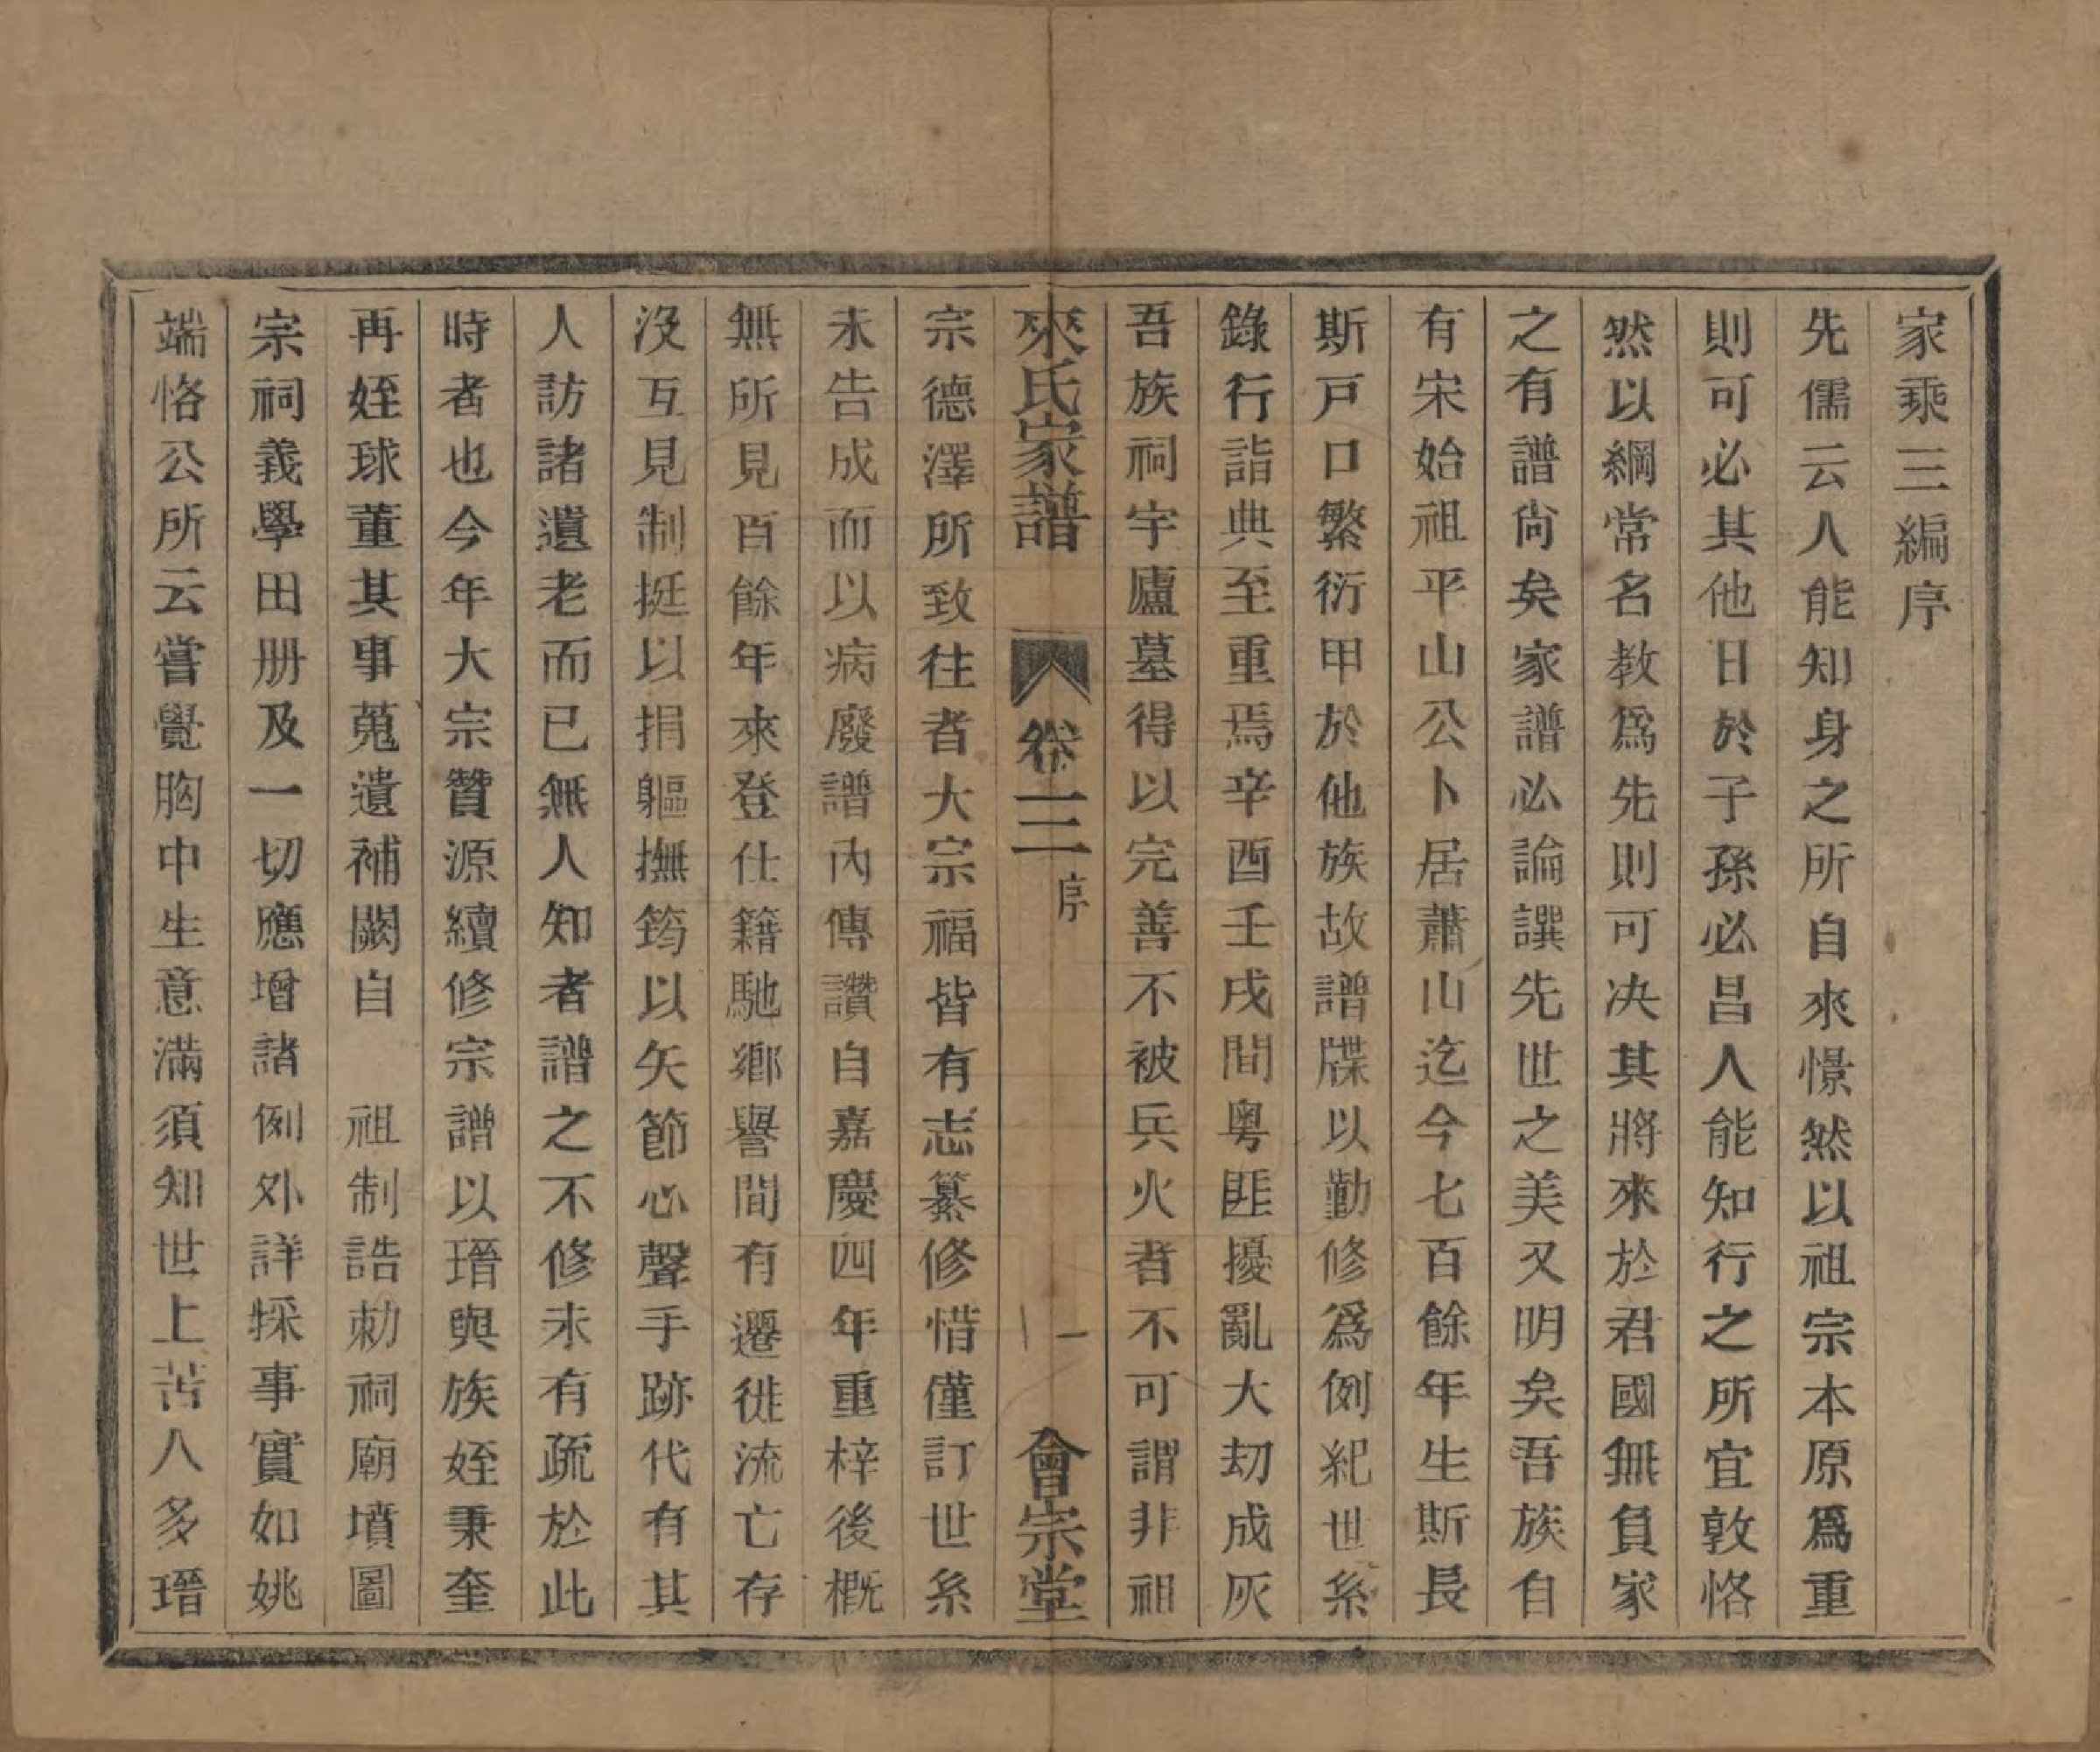 家乘三編序
先儒云人能知身之所自來憬然以祖宗本原爲重
則可必其他日於子孫必昌人能知行之所宜敦恪
然以綱常名教爲先則可决其將來於君國無負家
之有譜尙矣家譜必論譔先世之美又明矣吾族自
有宋始祖平山公卜居蕭山迄今七百餘年生斯長
斯戸口繁衍甲於他族故譜牒以勤修爲例紀世系
錄行詣典至重焉辛酉壬戌間粤匪擾亂大刧成灰
吾族祠宇廬墓得以完善不被兵火者不可謂非祖
來氏家譜 卷三 序 一 會宗堂
宗德澤所致往者大宗福皆有志纂修惜僅訂世系
未告成而以病廢譜內傳讚自嘉慶四年重梓後概
無所見百餘年來登仕籍馳鄉譽間有遷徙流亡存
沒互見制挺以捐軀撫筠以矢節心聲手跡代有其
人訪諸遺老而已無人知者譜之不修未有疏於此
時者也今年大宗贊源續修宗譜以瑨與族姪秉奎
再姪球董其事蒐遺補闕自 祖制誥勅祠廟墳圖
宗祠義學田册及一切應增諸例外詳採事實如姚
端恪公所云嘗覺胸中生意滿須知世上苦人多瑨